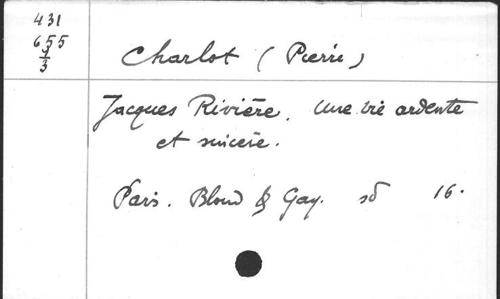 431
655
1/3
Charlot (Pierre)
Jacques Rivière. Une vie ardente
et sincère.
Paris. Bloud & Gay. sd 16.